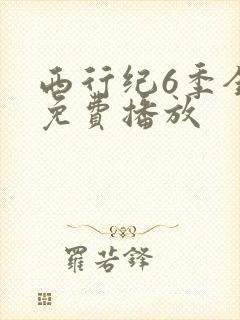 西行纪6季全
免費播放
羅若鋒